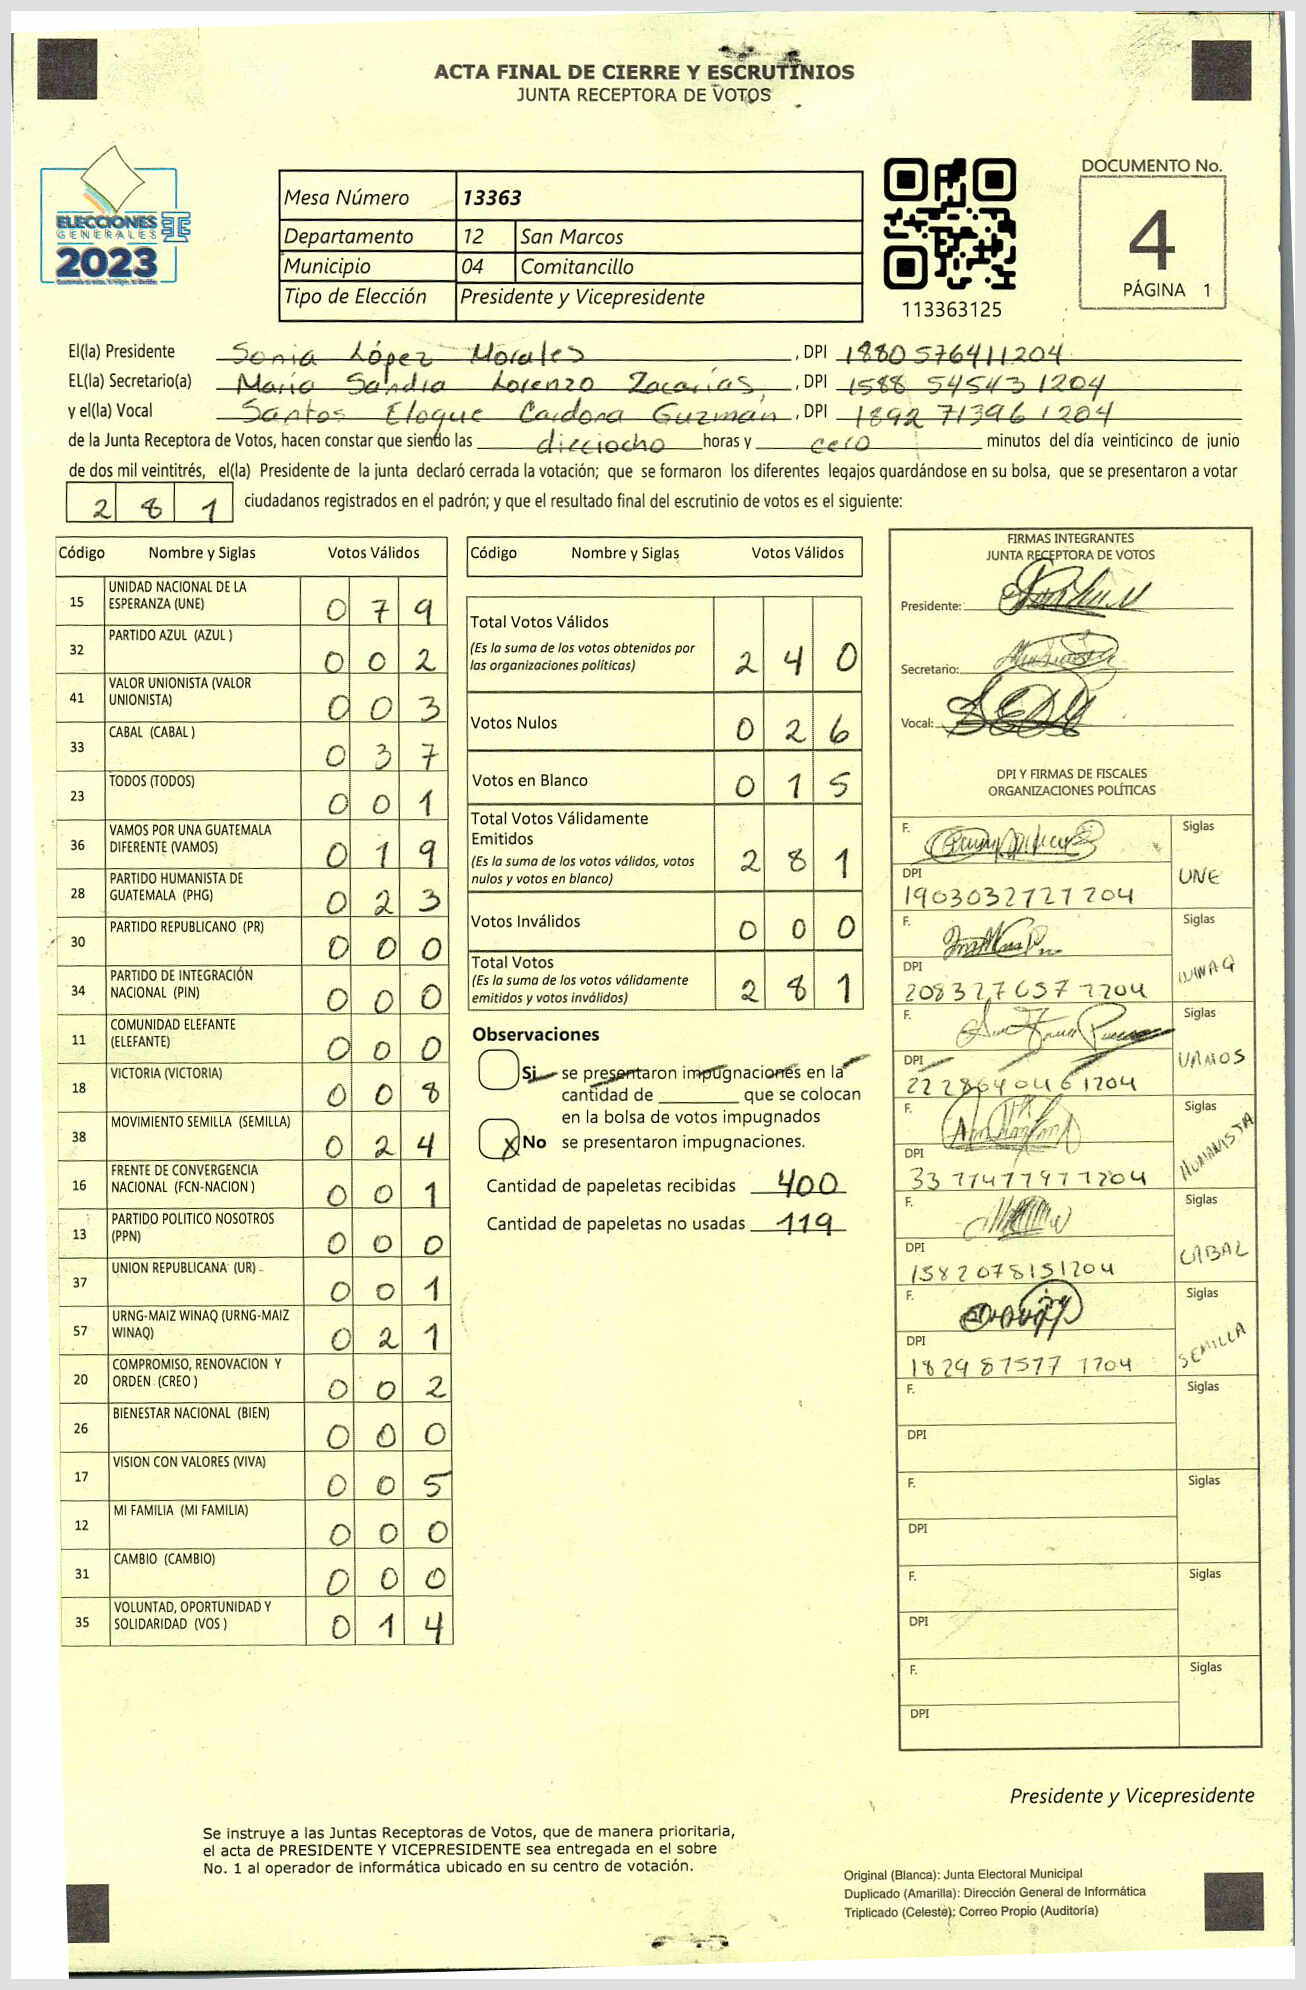 ACTA FINAL DE CIERRE Y ESCRUTINIOS
JUNTA RECEPTORA DE VOTOS
ELECCIONES
GENERALES
2023
Mesa Número 13363
Departamento 12 San Marcos
Municipio 04 Comitancillo
Tipo de Elección Presidente y Vicepresidente
113363125
DOCUMENTO No.
4
PÁGINA 1
El(la) Presidente Sonia López Morales, DPI 1880576411204
EL(la) Secretario(a) María Sandra Lorenzo Zacarías, DPI 1588 54543 1204
y el(la) Vocal Santos Eloque Cardona Guzmán, DPI 1892 71396 1204
de la Junta Receptora de Votos, hacen constar que siendo las dieciocho horas y cero minutos del día veinticinco de junio
de dos mil veintitrés, el(la) Presidente de la junta declaró cerrada la votación; que se formaron los diferentes legajos quardándose en su bolsa, que se presentaron a votar
281 ciudadanos registrados en el padrón; y que el resultado final del escrutinio de votos es el siguiente:
Código Nombre y Siglas Votos Válidos
15 UNIDAD NACIONAL DE LA ESPERANZA (UNE) 079
32 PARTIDO AZUL (AZUL ) 002
41 VALOR UNIONISTA (VALOR UNIONISTA) 003
33 CABAL (CABAL ) 037
23 TODOS (TODOS) 001
36 VAMOS POR UNA GUATEMALA DIFERENTE (VAMOS) 019
28 PARTIDO HUMANISTA DE GUATEMALA (PHG) 023
30 PARTIDO REPUBLICANO (PR) 000
34 PARTIDO DE INTEGRACIÓN NACIONAL (PIN) 000
11 COMUNIDAD ELEFANTE (ELEFANTE) 000
18 VICTORIA (VICTORIA) 008
38 MOVIMIENTO SEMILLA (SEMILLA) 024
16 FRENTE DE CONVERGENCIA NACIONAL (FCN-NACION ) 001
13 PARTIDO POLITICO NOSOTROS (PPN) 000
37 UNION REPUBLICANA (UR) 001
57 URNG-MAIZ WINAQ (URNG-MAIZ WINAQ) 021
20 COMPROMISO, RENOVACION Y ORDEN (CREO ) 002
26 BIENESTAR NACIONAL (BIEN) 000
17 VISION CON VALORES (VIVA) 005
12 MI FAMILIA (MI FAMILIA) 000
31 CAMBIO (CAMBIO) 000
35 VOLUNTAD, OPORTUNIDAD Y SOLIDARIDAD (VOS ) 014
Código Nombre y Siglas Votos Válidos
Total Votos Válidos 240
(Es la suma de los votos obtenidos por
las organizaciones políticas)
Votos Nulos 026
Votos en Blanco 015
Total Votos Válidamente
Emitidos 281
(Es la suma de los votos válidos, votos
nulos y votos en blanco)
Votos Inválidos 000
Total Votos 281
(Es la suma de los votos válidamente
emitidos y votos inválidos)
Observaciones
Si se presentaron impugnaciones en la
cantidad de ________ que se colocan
en la bolsa de votos impugnados
X No se presentaron impugnaciones.
Cantidad de papeletas recibidas 400
Cantidad de papeletas no usadas 119
FIRMAS INTEGRANTES
JUNTA RECEPTORA DE VOTOS
Presidente:
Secretario:
Vocal:
DPI Y FIRMAS DE FISCALES
ORGANIZACIONES POLÍTICAS
F. Siglas
DPI UNE
1903032727204
F. Siglas
DPI WINAQ
F. Siglas
DPI VAMOS
F. Siglas
DPI HUMANISTA
F. Siglas
DPI CABAL
1582078151204
F. Siglas
DPI SEMILLA
F. Siglas
DPI
F. Siglas
DPI
F. Siglas
DPI
F. Siglas
DPI
Presidente y Vicepresidente
Se instruye a las Juntas Receptoras de Votos, que de manera prioritaria,
el acta de PRESIDENTE Y VICEPRESIDENTE sea entregada en el sobre
No. 1 al operador de informática ubicado en su centro de votación.
Original (Blanca): Junta Electoral Municipal
Duplicado (Amarilla): Dirección General de Informática
Triplicado (Celeste): Correo Propio (Auditoría)